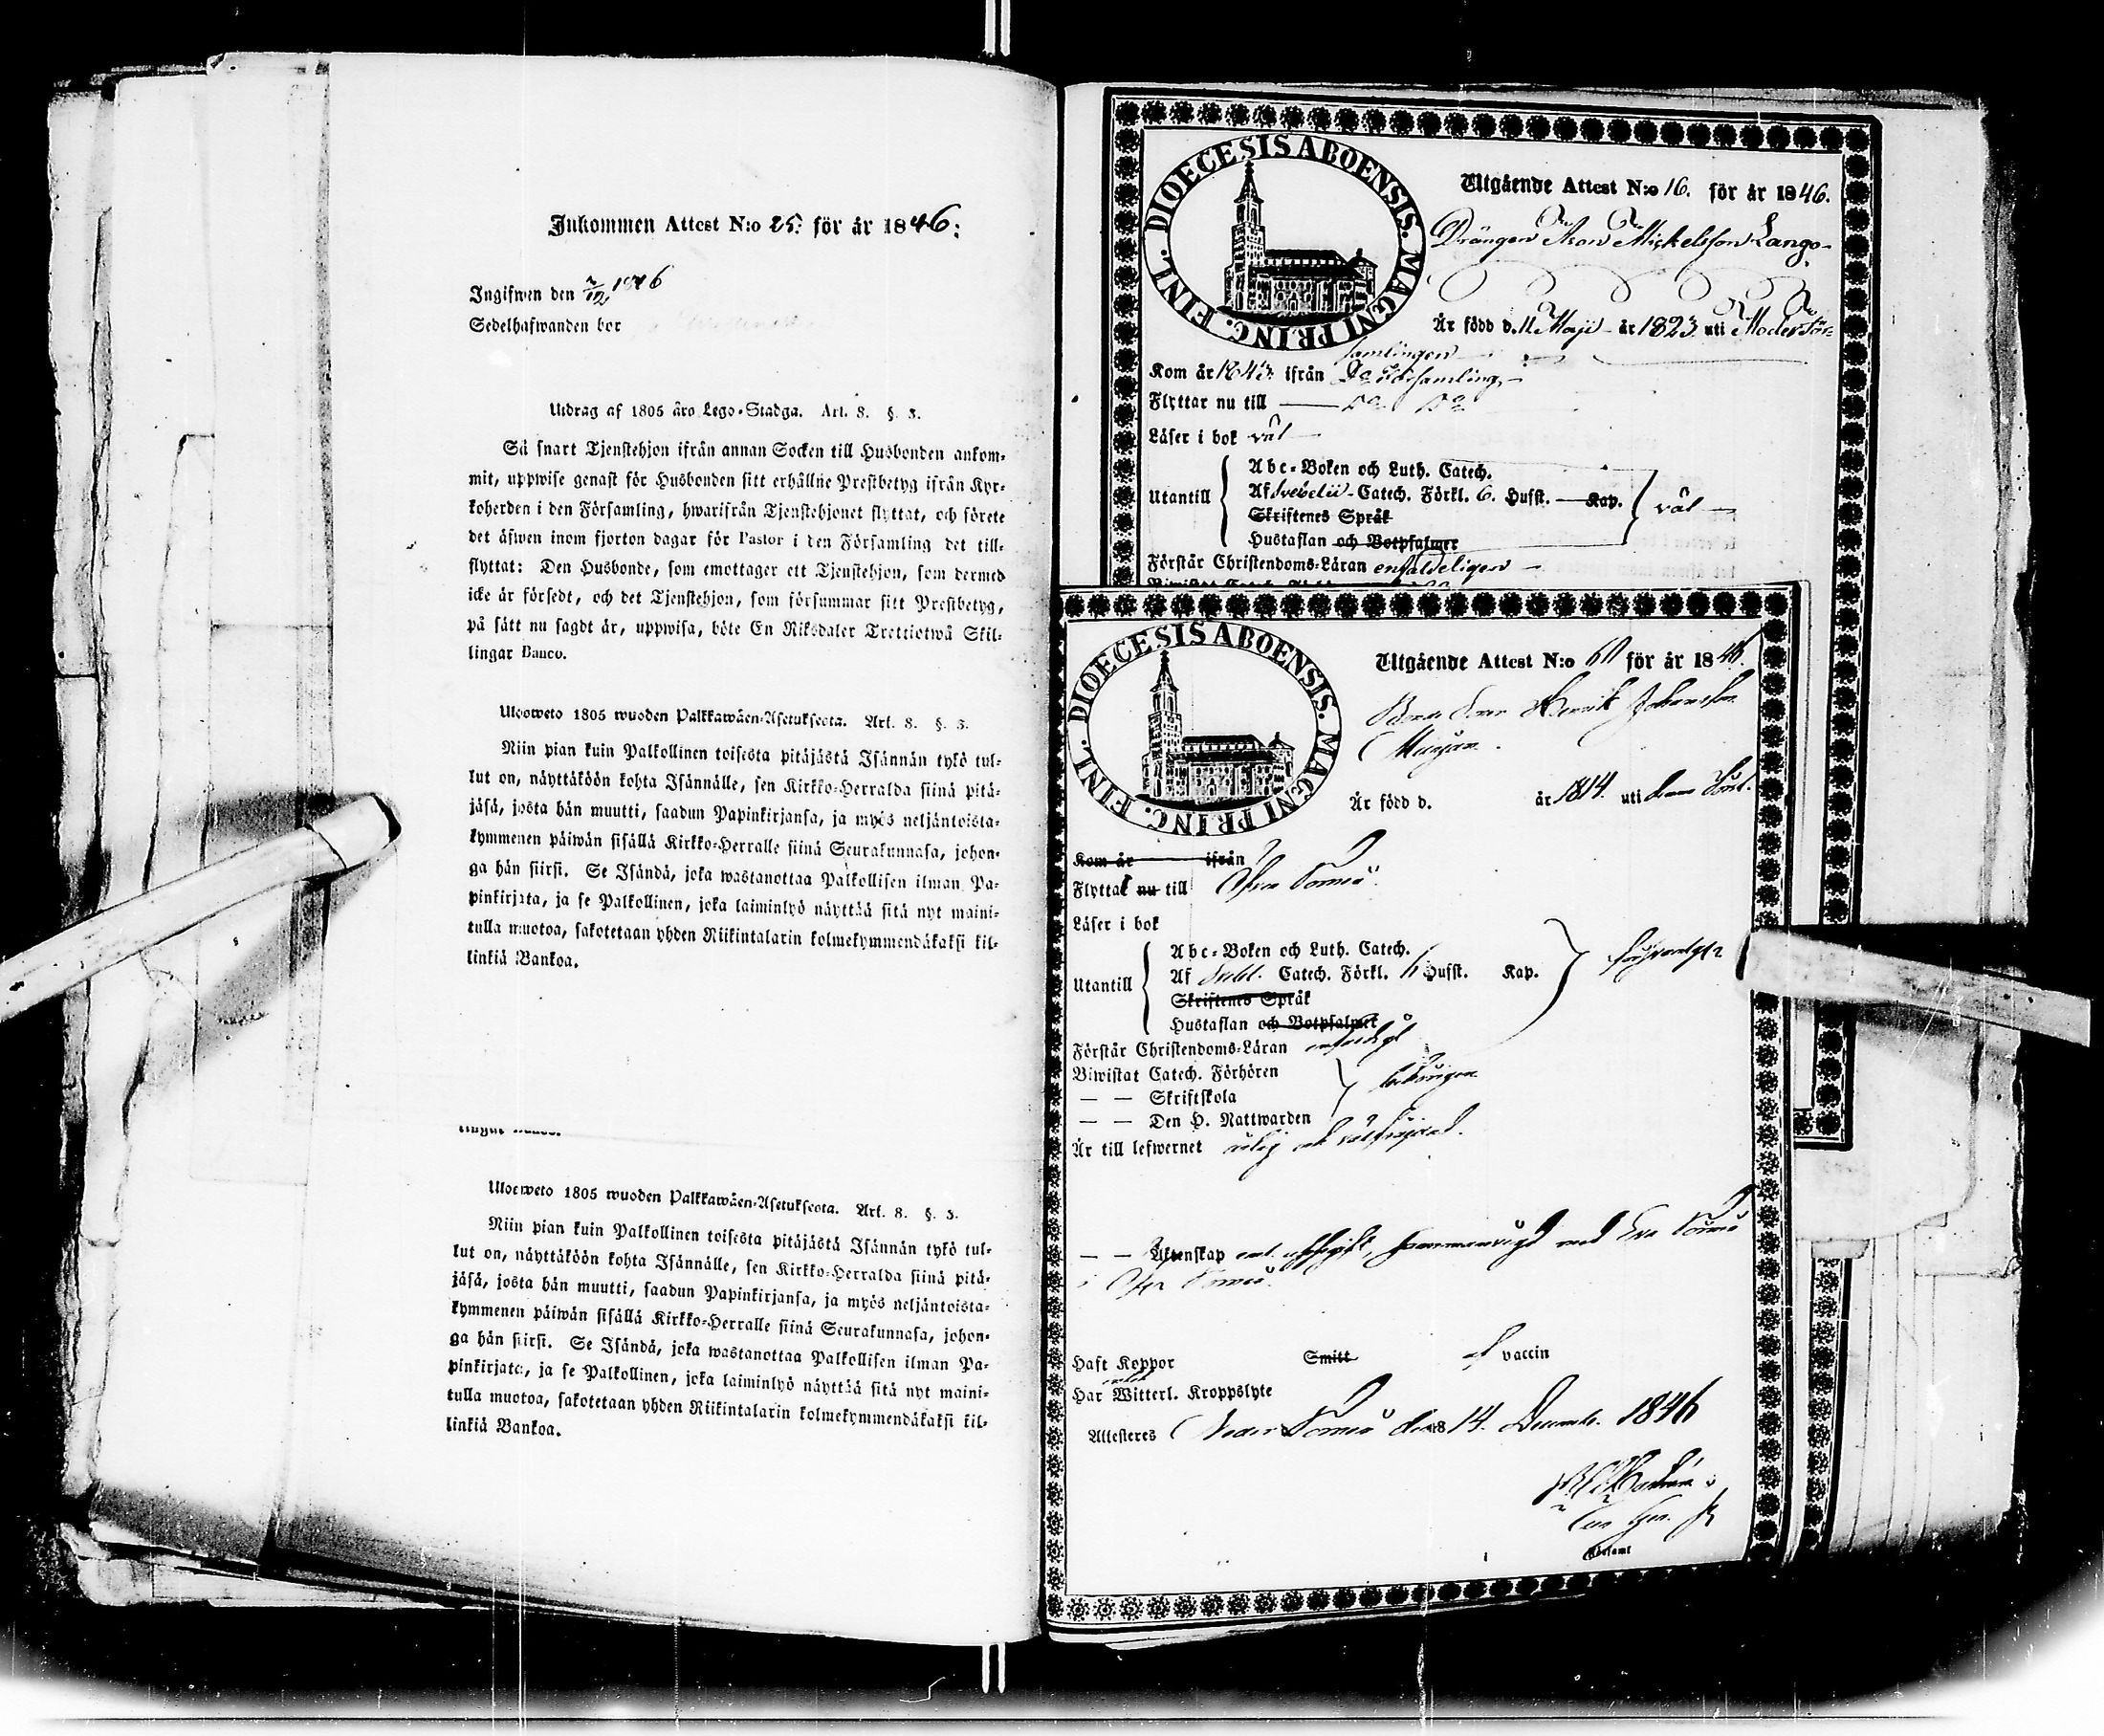 Inkommen Attest N:o 25. för år 1846:
Ingifwen den 7/12 1846
Sedelhafwanden bor
Utdrag af 1805 års Lego-Stadga. Art. 8. §. 3.
Så snart Tjenstehjon ifrån annan Socken till Husbonden ankom-
mit, uppwise genast för Husbonden sitt erhållne Prestbetyg ifrån Kyr-
koherden i den Församling, hwarifrån Tjenstehjonet flyttat, och förete
det äfwen inom fjorton dagar för Pastor i den Församling det till-
flyttat: Den Husbonde, som emottager ett Tjenstehjon, som dermed
icke är försedt, och det Tjenstehjon, som försummar sitt Prestbetyg,
på sätt nu sagdt är, uppwisa, böte En Riksdaler Trettiotwå Skil-
lingar Banco.
Ulosweto 1805 wuoden Palkkawäen-Asetuksesta. Art. 8. §. 3.
Niin pian kuin Palkollinen toisesta pitäjästä Isännän tykö tul-
lut on, näyttäköön kohta Isännälle, sen Kirkko-Herralda siinä pitä-
jäsä, josta hän muutti, saadun Papinkirjansa, ja myös neljäntoista-
kymmenen päiwän sisällä Kirkko-Herralle siinä Seurakunnasa, johon-
ga hän siirsi. Se Isändä, joka wastanottaa Palkollisen ilman Pa-
pinkirjata, ja se Palkollinen, joka laiminlyö näyttää sitä nyt maini-
tulla muotoa, sakotetaan yhden Riikintalarin kolmekymmendäkaksi kil-
linkiä Bankoa.
Ulosweto 1805 wuoden Palkkawäen-Asetuksesta. Art. 8. §. 3.
Niin pian kuin Palkollinen toisesta pitäjästä Isännän tykö tul-
lut on, näyttäköön kohta Isännälle, sen Kirkko-Herralda siinä pitä-
jäsä, josta hän muutti, saadun Papinkirjansa, ja myös neljäntoista-
kymmenen päiwän sisällä Kirkko-Herralle siinä Seurakunnasa, johon-
ga hän siirsi. Se Isändä, joka wastanottaa Palkollisen ilman Pa-
pinkirjata, ja se Palkollinen, joka laiminlyö näyttää sitä nyt maini-
tulla muotoa, sakotetaan yhden Riikintalarin kolmekymmendäkaksi kil-
linkiä Bankoa.
DIOECESIS ABOENSIS. MAGNI PRINC. FINL.
Utgående Attest N:o 16. för år 1846.
Drängen Mickelsson Lango
Är född d. 11 Maji år 1823 uti Moderför-
samlingen
Kom år 1845 ifrån
Flyttar nu till
Läser i bok väl
Utantill
Abc-Boken och Luth. Catech.
Af Svebelii Catech. Förkl. 6. Hufst. Kap.
väl
Skriftenes Språk
Hustaflan och Botpsalmer
Förstår Christendoms-Läran enfaldeligen
DIOECESIS ABOENSIS. MAGNI PRINC. FINL.
Utgående Attest N:o 60 för år 1846.
Bonde Sonen Henrik Johansson
Är född d. år 1814. uti
Kom år ifrån
Flyttat nu till Öfver Torneå
Läser i bok
Utantill
Abc-Boken och Luth. Catech.
Af Svebil. Catech. Förkl. 6 Hufst. Kap.
försvarligt
Skriftenes Språk
Hustaflan och Botpsalmer
Förstår Christendoms-Läran enfaldigt
Biwistat Catech. Förhören
— — Skriftskola
— — Den H. Nattwarden
Är till lefwernet ärlig och välfrejdad.
— — Äktenskap enl. uppgift, sammanvigd med Eva Torneå
i Öfver Torneå.
Haft Koppor Smitt af vaccin
Har Witterl. Kroppslyte
Attesteres Neder Torneå den 14. Decemb. 1846